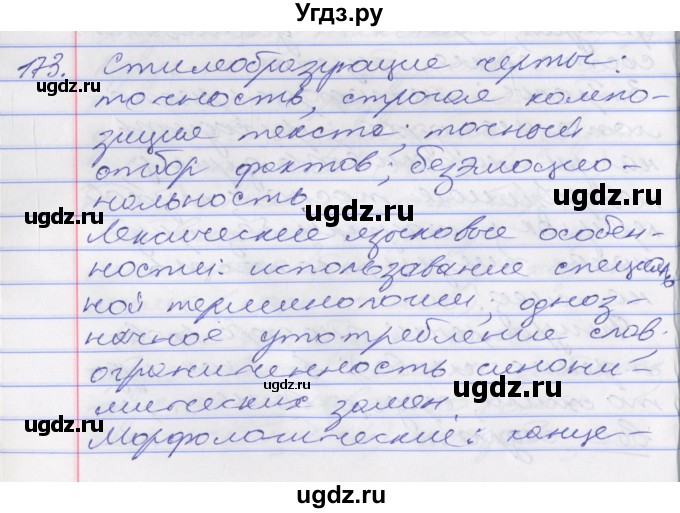 Угдз.ру
173. Стилеобразующие черты:
точность, строгая компо-
зиция текста; точный
отбор фактов; безэмоцио-
нальность.
Лексические языковые особен-
ности: использавание специаль
ной терминологии; одноз-
начное употребление слов.
ограниченность синони-
мических замен.
Морфологические: канце-
ugdz.ru
ugdz.ru
ugdz.ru
ugdz.ru
ugdz.ru
ugdz.ru
ugdz.ru
ugdz.ru
ugdz.ru
ugdz.ru
ugdz.ru
ugdz.ru
ugdz.ru